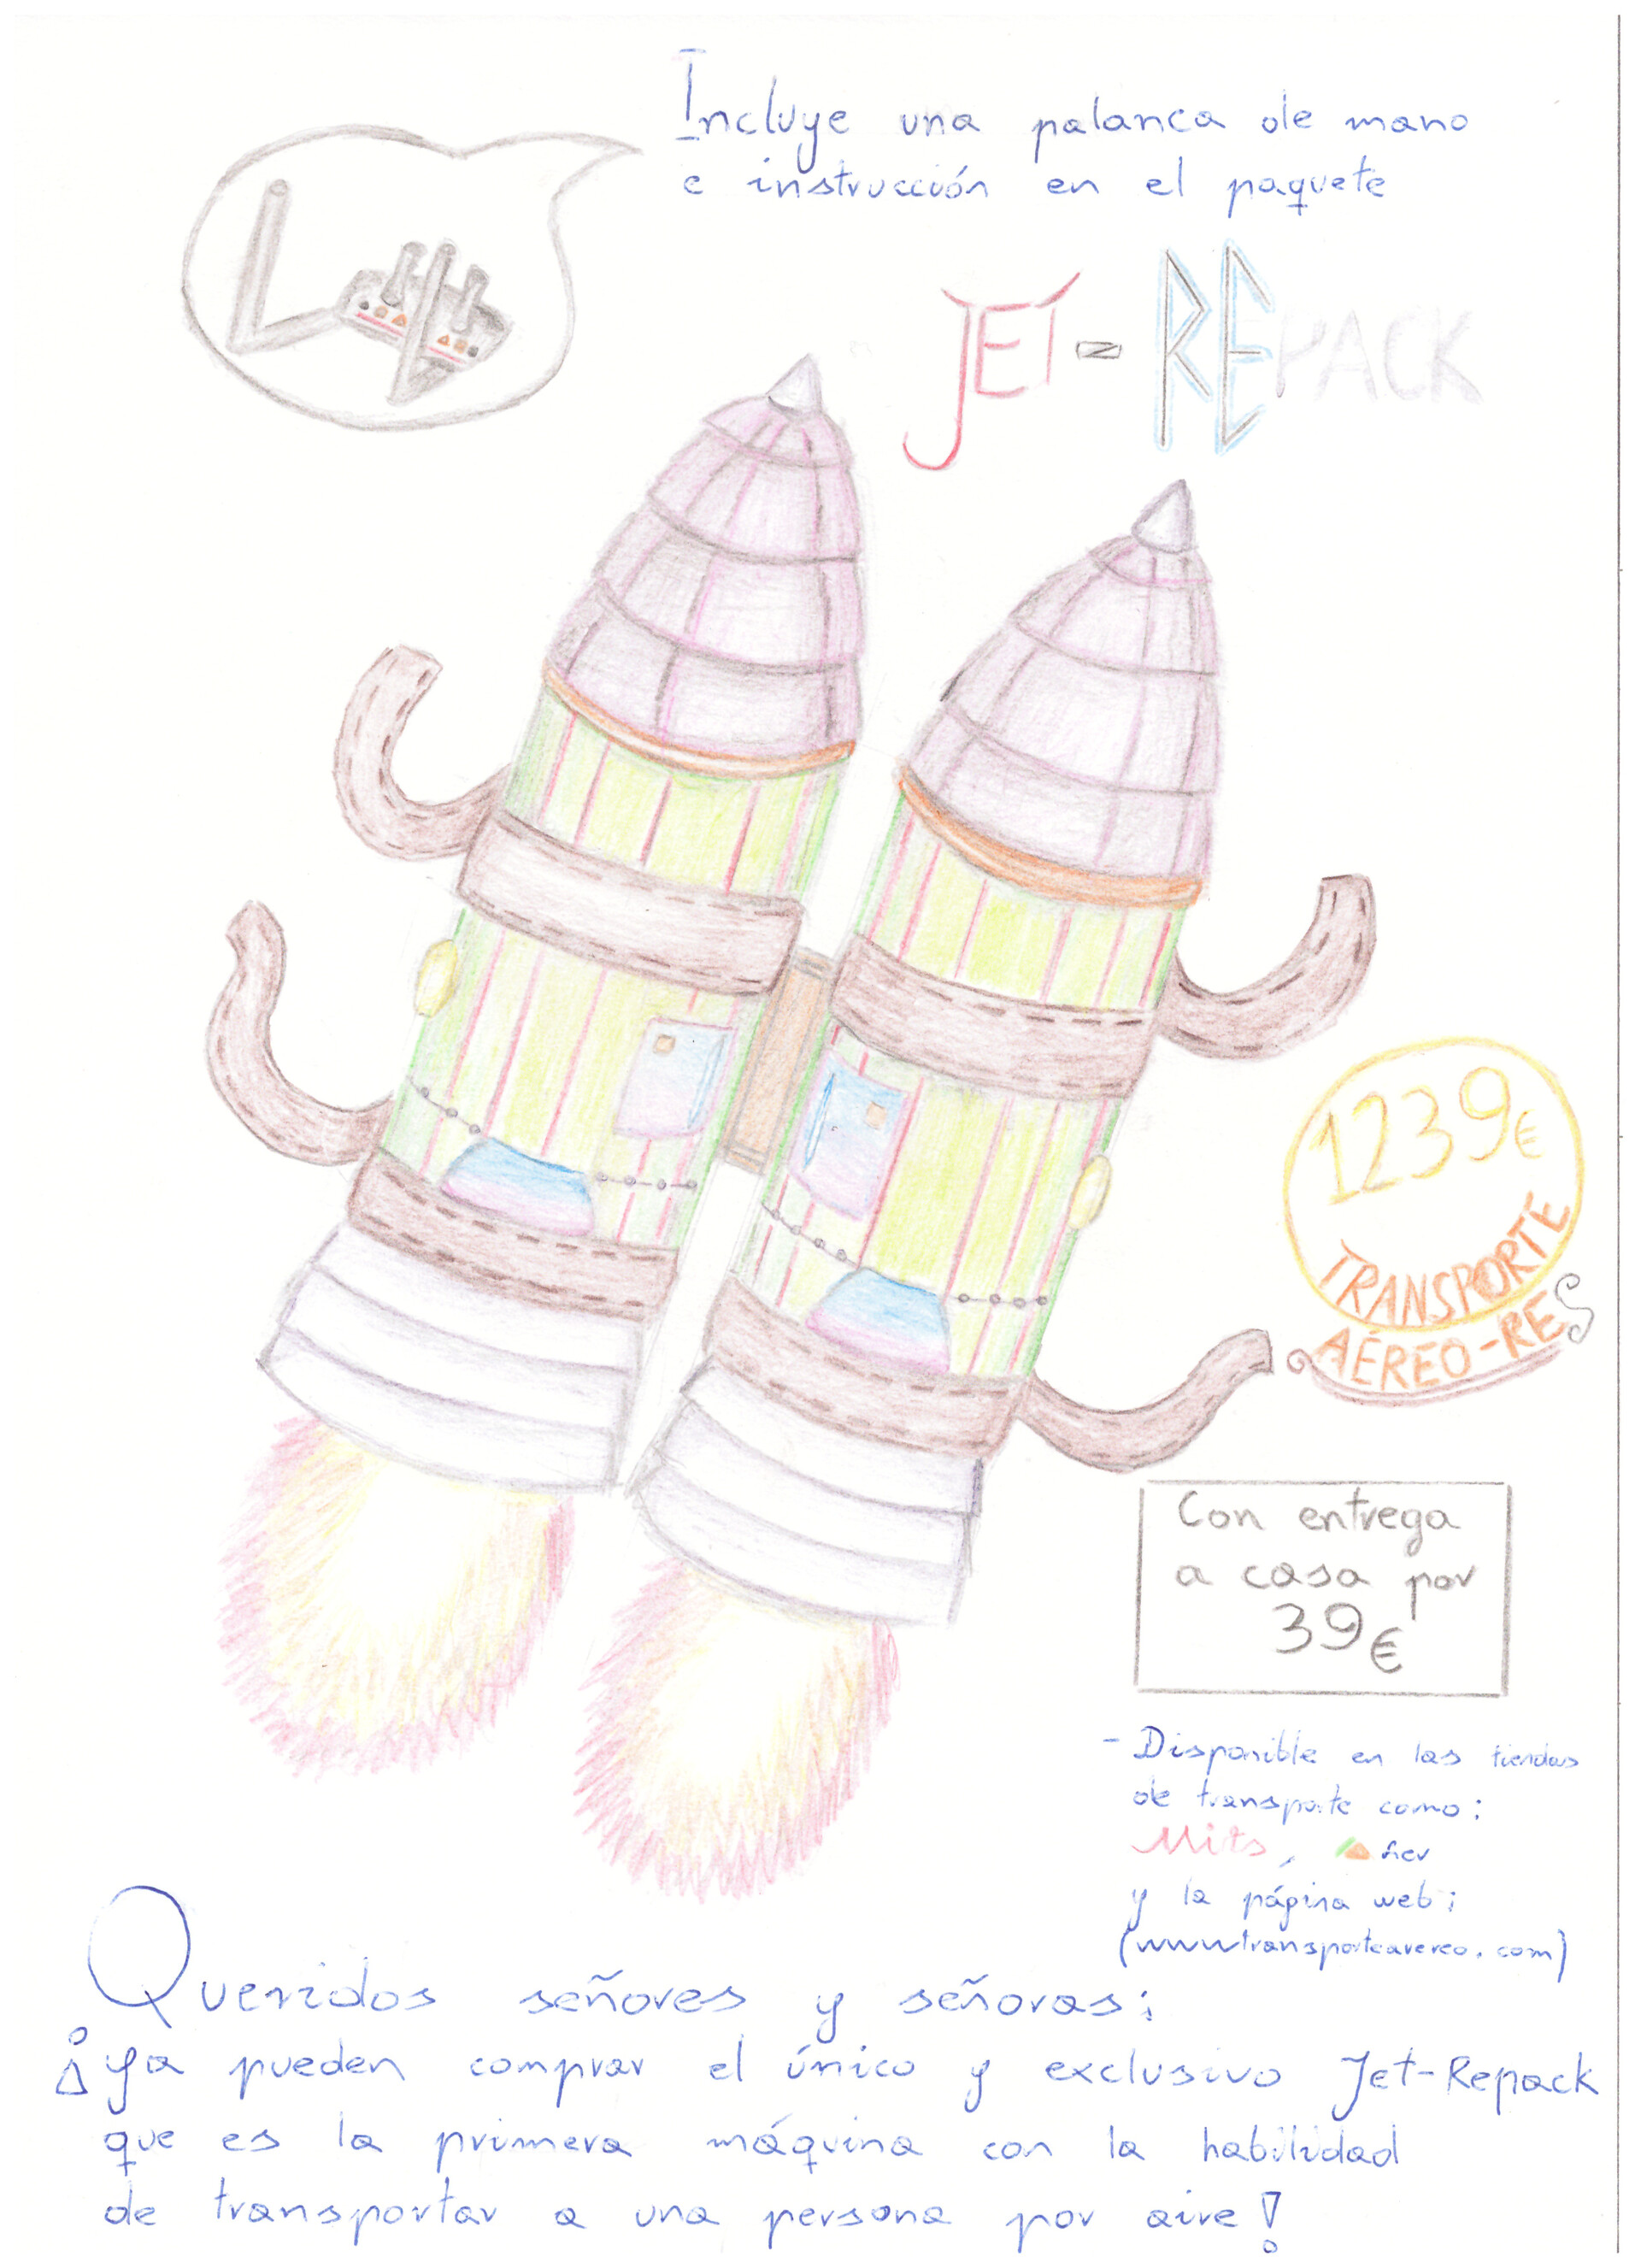 Incluye una palanca de mano
e instrucción en el paquete
JET-REPACK
1239€
TRANSPORTE
AÉREO-RES
Con entrega
a casa por
39€
- Disponible en las tiendas
de transporte como:
Mits,
y la página web:
Queridos señores y señoras:
¡Ya pueden comprar el único y exclusivo Jet-Repack
que es la primera máquina con la habilidad
de transportar a una persona por aire!